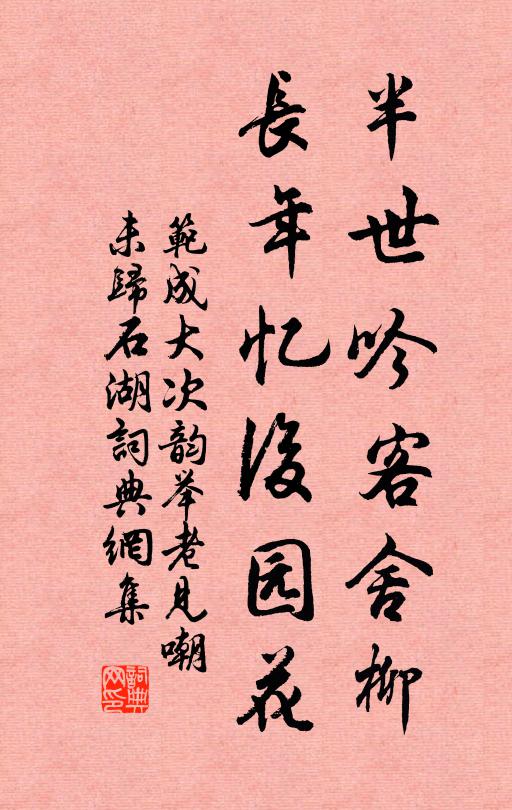 半世吟客舍柳
長年忆後园花
範成大次韵举老见嘲
未歸石湖詞典網集
詞典网印